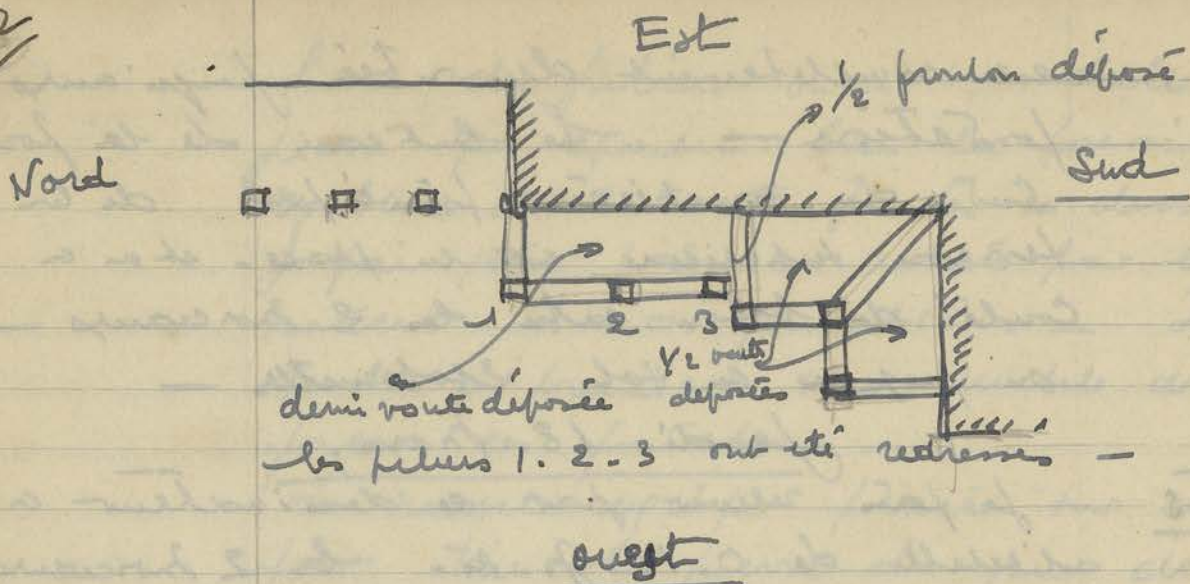 2
Est
1/2 fronton déposé
Nord
Sud
1 2 3
1/2 voute
demi voute déposée déposées
les piliers 1. 2. 3 ont été redressés —
ouest